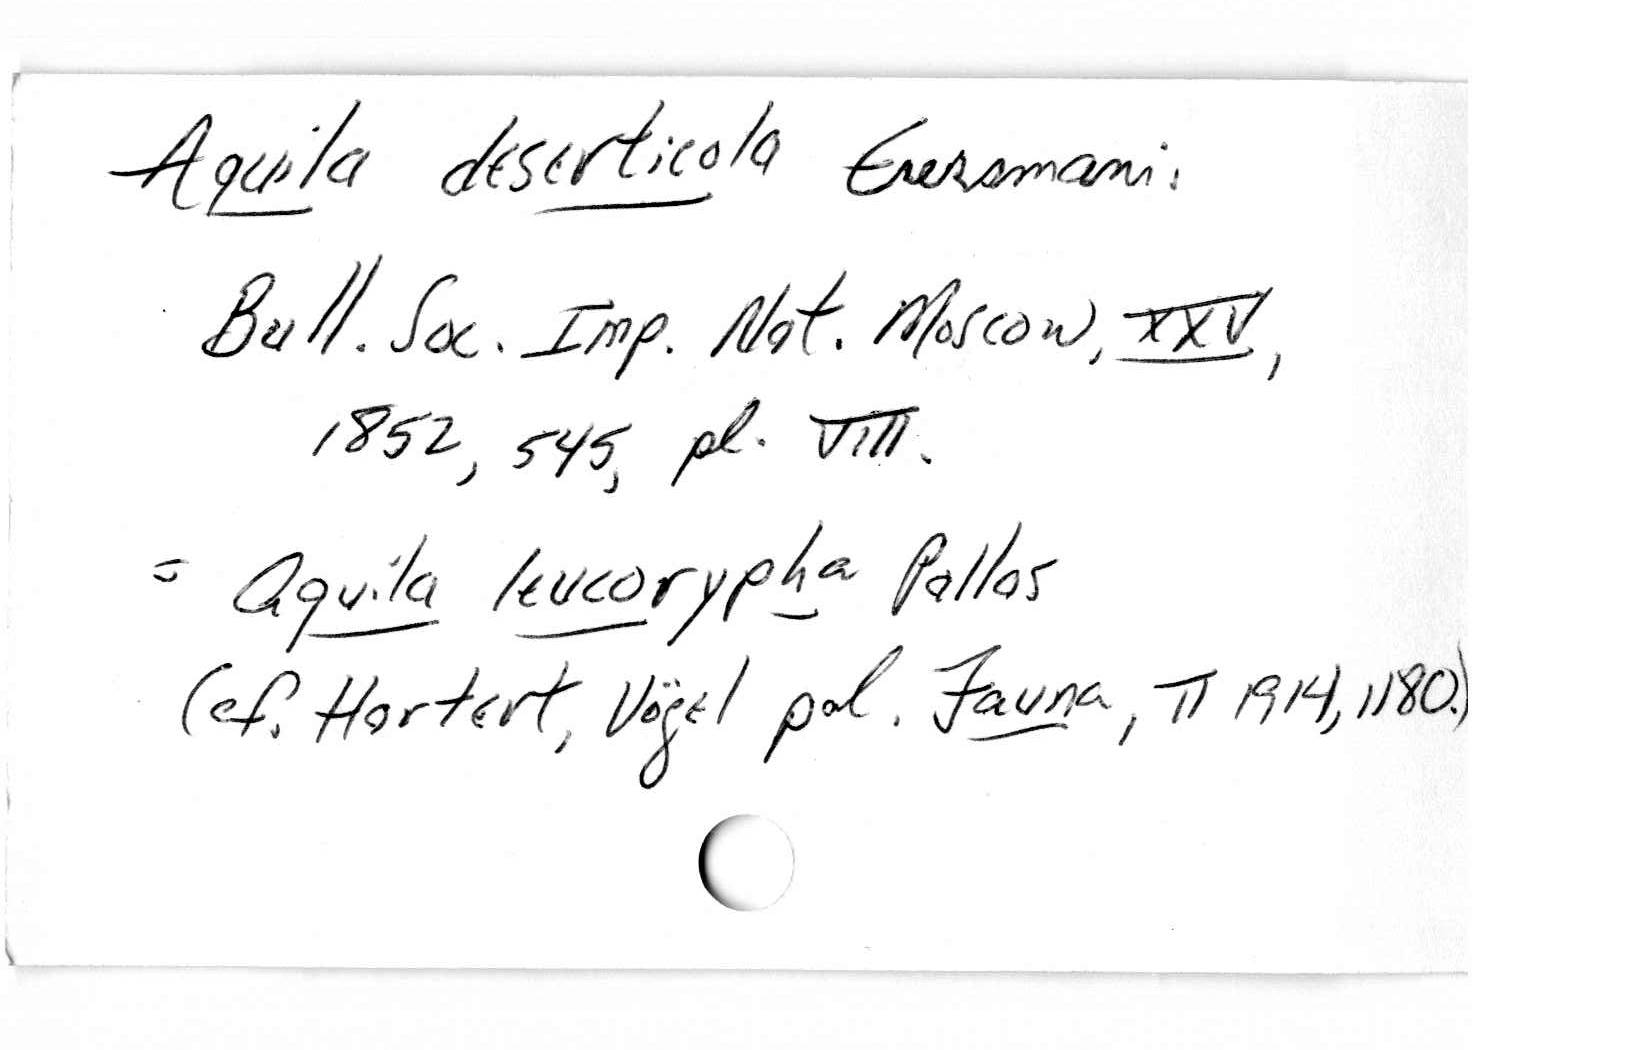 Aquila deserticola Eversmani.
Bull. Soc. Imp. Nat. Moscow, XXV,
1852, 545, pl. VIII.
= Aquila leucorypha Pallas
(cf. Hartert, Vögel pal. Fauna, II 1914, 1180.)